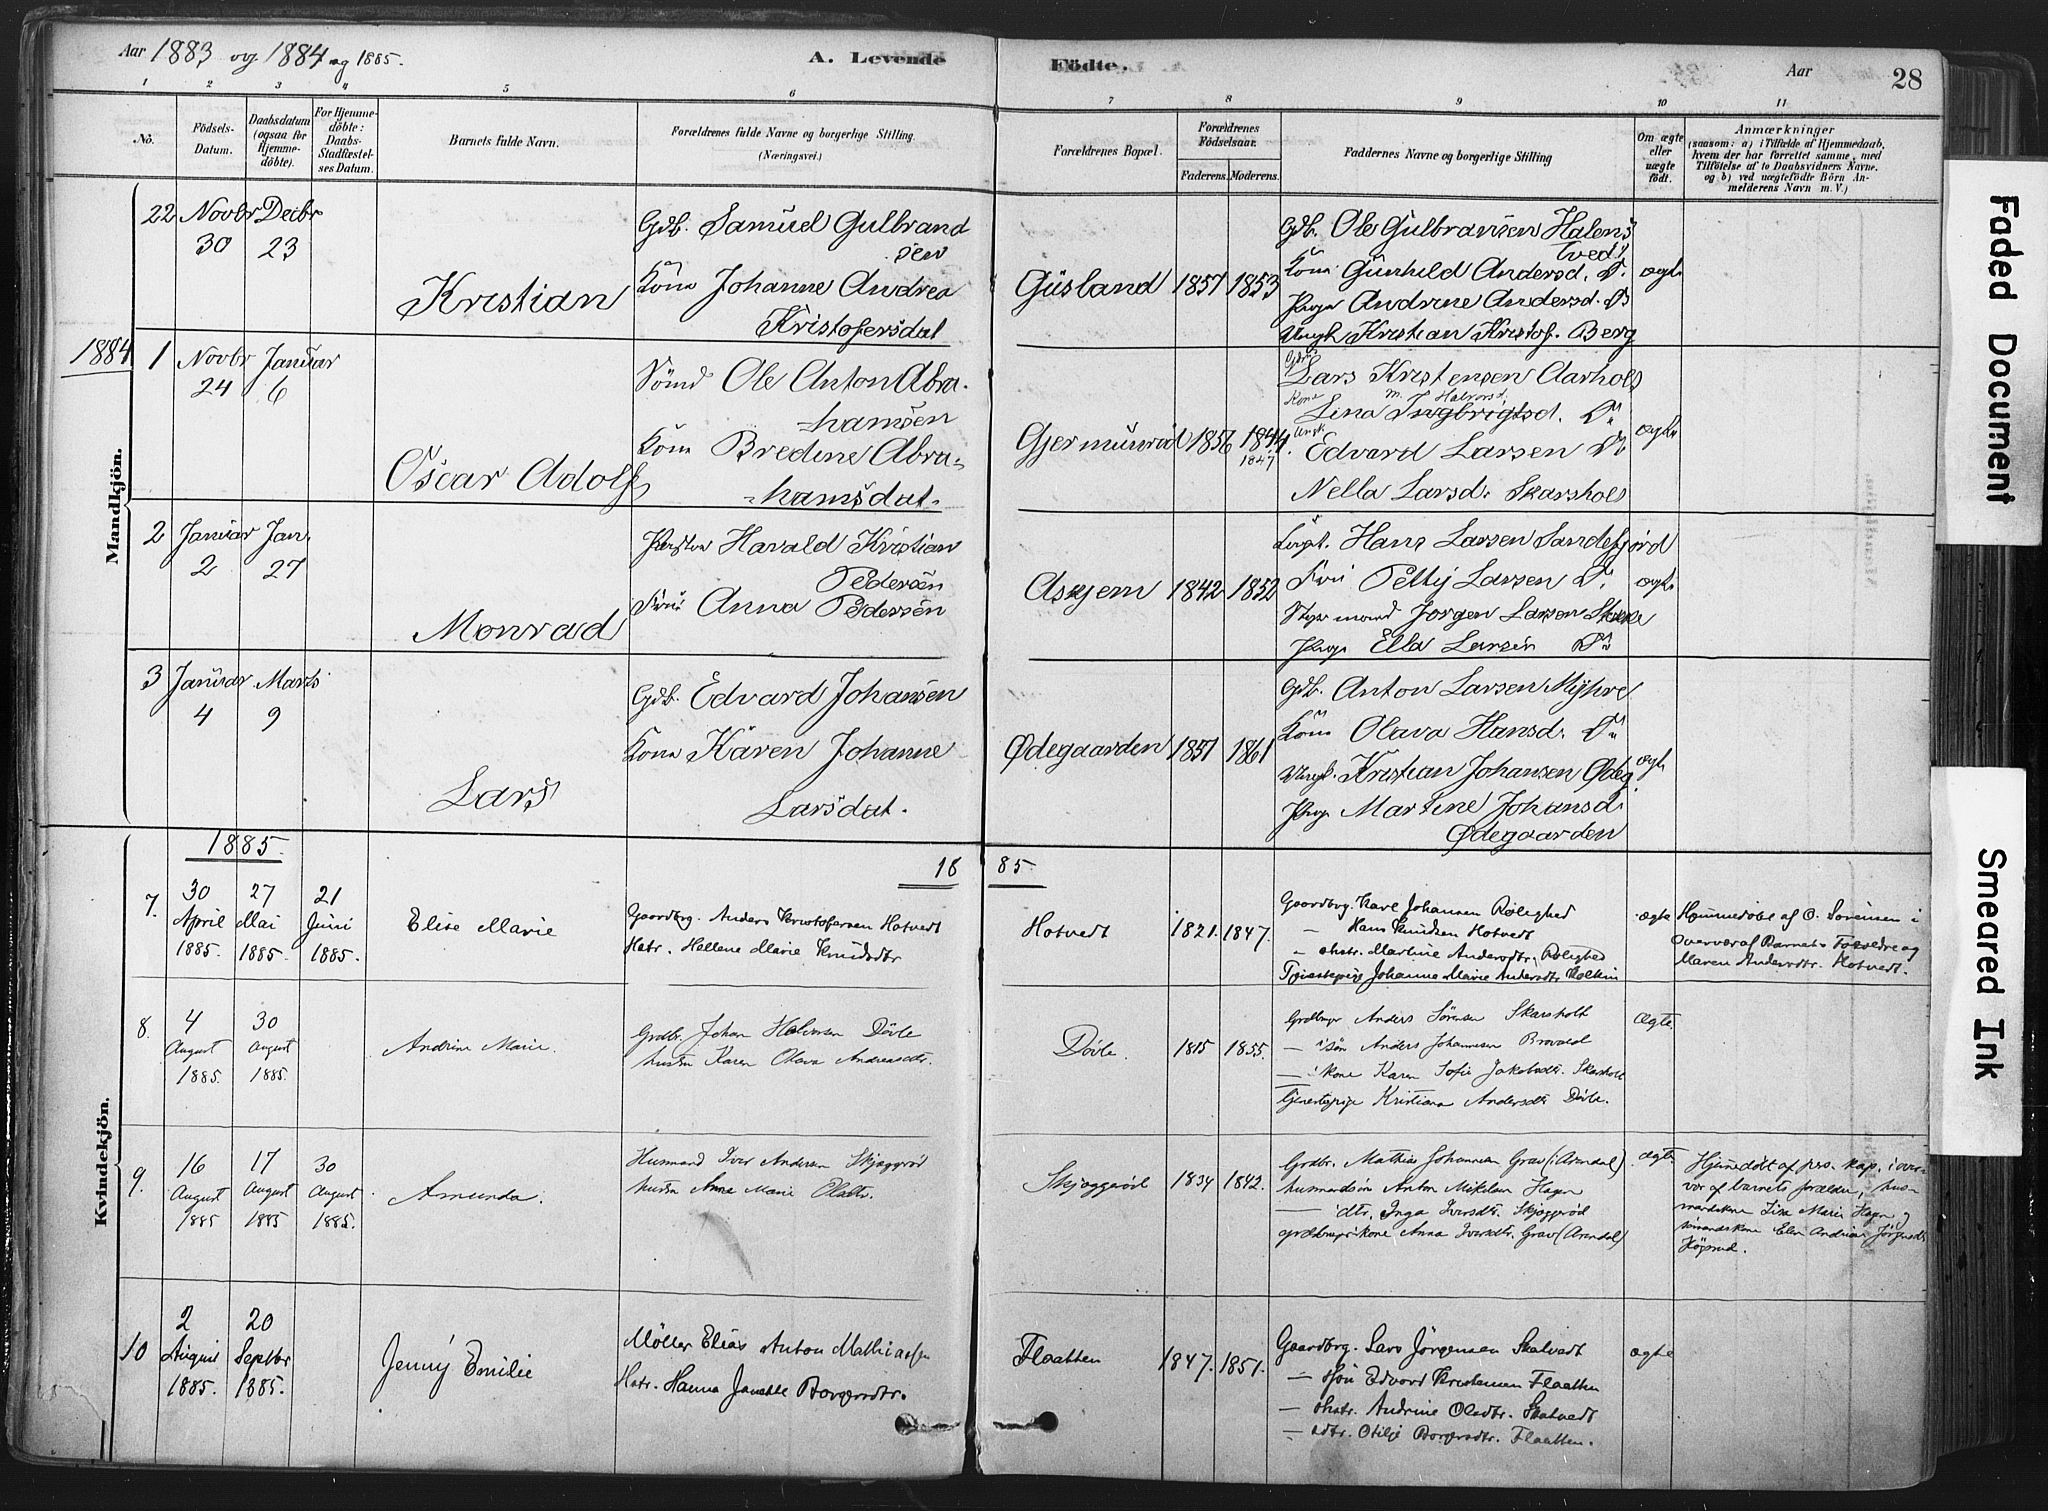 Aar 1883 og 1884 og 1885.
A. Levende Födte.
Aar
28
1 2 3 4 5 6 7 8 9 10 11
No.
Födsels-Datum.
Daabsdatum (ogsaa for Hjemmedöbte).
For Hjemmedöbte: Daabs-Stadfæstelses Datum.
Barnets fulde Navn.
Forældrenes fulde Navne og borgerlige Stilling.
(Næringsvei.)
Forældrenes Bopæl.
Forældrenes Födselsaar.
Faderens. Moderens.
Faddernes Navne og borgerlige Stilling
Om ægte eller uægte födt.
Anmærkninger
(saasom: a) i Tilfælde af Hjemmedaab,
hvem der har forrettet samme, med
Tilföielse af to Daabsvidners Navne,
og b) ved uægtefödte Börn Anmelderens Navn m. V.)
Mandkjön.
22 Novbr 30 Decbr 23
Kristian
Gdb. Samuel Gulbrand
sen
Kone Johanne Andrea
Kristofersdat
Gusland 1857 1853
Gdb. Ole Gulbransen Halens
tved
Kone Gunhild Andersd. Do
Pige Andrine Andersd. Do
Ungk Kristian Kristof. Berg
ægte
1884
1 Novbr 24 Januar 6
Oscar Adolf
Sömd Ole Anton Abra-
hamsen
Kone Bredine Abra-
hamsdat.
Gjermundröd 1856 1844.
1847
Lars Kristensen Aarhols
Kone M. Halvorsd.
Lina Ingbrigtsd. Do
Ungk Edvard Larsen Do
Nella Larsd. Skarshols
ægte
2 Januar 2 Jan. 27
Monrad
Harald Kristian
Pedersen
Frü Anna Pedersen
Askjem 1842 1852
Hans Larsen Sandefjord
Frü Petty Larsen Do
Styrmand Jorgen Larsen
Pige Ella Larsen Do
ægte
3 Januar 4 Marts 9
Lars
Gdb. Edvard Johansen
Kone Karen Johanne
Larsdat.
Ødegaarden 1857 1861
Gdb. Anton Larsen Myhre
Kone Olava Hansd. Do
Ungk. Kristian Johansen Ødeg.
Pige Martine Johansd.
Ødegaarden
ægte
1885.
18 85.
Kvindekjön.
7. 30 April 1885. 27 Mai 1885. 21 Juni 1885.
Elise Marie
Gaardbrg. Anders Kristofersen Hotvedt
Hstr. Hellene Marie Knudsdtr
Hotvedt 1821. 1847.
Gaardbrg. Karl Johansen Rolighed
— Hans Knudsen Hotvedt
— ehstr. Martine Andersdtr. Rolighed
Tjenestepig Johanne Marie Andersdtr
ægte
Hjemmedöbt af O. Sörensen i
Overvær af Barnets Forældre og
Maren Andersdtr. Hotvedt.
8. 4 August 1885. 30 August 1885.
Andrine Marie.
Grdbr. Johan Halvorsen Dövle
hustru Karen Olava Andreasdtr.
Dövle. 1815 1855.
Grdbruger Anders Sörensen Skarsholt
— sön Anders Johannesen Brovald
— kone Karen Sofie Jakobsdtr. Skarsholt
tjenestepige Kristiana Andersdtr Dövle.
Ægte
9. 16 August 1885 17 August 1885 30 August 1885.
Amunda.
Husmand Iver Andersen Skjæggeröd
hustru Anna Marie Olsdtr.
Skjæggeröd 1834 1842.
Grdbr. Mathias Johannesen Grav (i Arendal)
husmandsön Anton Mikilsen Hagen
— dtr. Inga Iversdtr. Skjæggeröd
grdbrugerkone Anna Iversdtr. Grav (Arendal)
ægte
Hjemmedöbt af pers. kap. i over-
vær af barnets forældre, hus-
mandskone Lisa Marie Hagen og
sömandskone Elen Andrine Jörgensdtr
10 2 August 1885. 20 Septbr 1885.
Jenny Emilie
Möller Elias Anton Mathiassen
Hstr. Hanna Janette Borgersdtr.
Flaatten 1847. 1851.
Gaardbrg. Lars Jörgensen Skatvedt
— sön Edvard Kristensen Flaatten
— ehstr. Andrine Olsdtr. Skatvedt
— dtr. Otilje Borgersdtr. Flaatten.
ægte
Faded Document
Smeared Ink